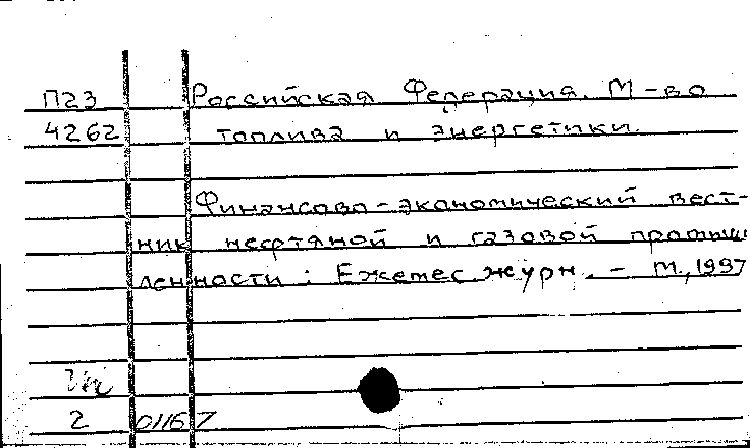 П23 Российская Федерация. М-во
4262 топлива и энергетики.
Финансово-экономический вест-
ник нефтяной и газовой промыш
ленности : Ежемес. журн. - М., 1997
2 01167